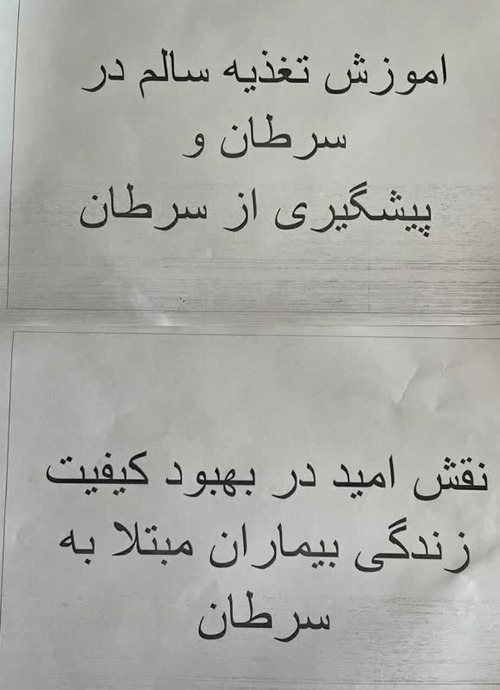 اموزش تغذیه سالم در
سرطان و
پیشگیری از سرطان
نقش امید در بهبود کیفیت
زندگی بیماران مبتلا به
سرطان